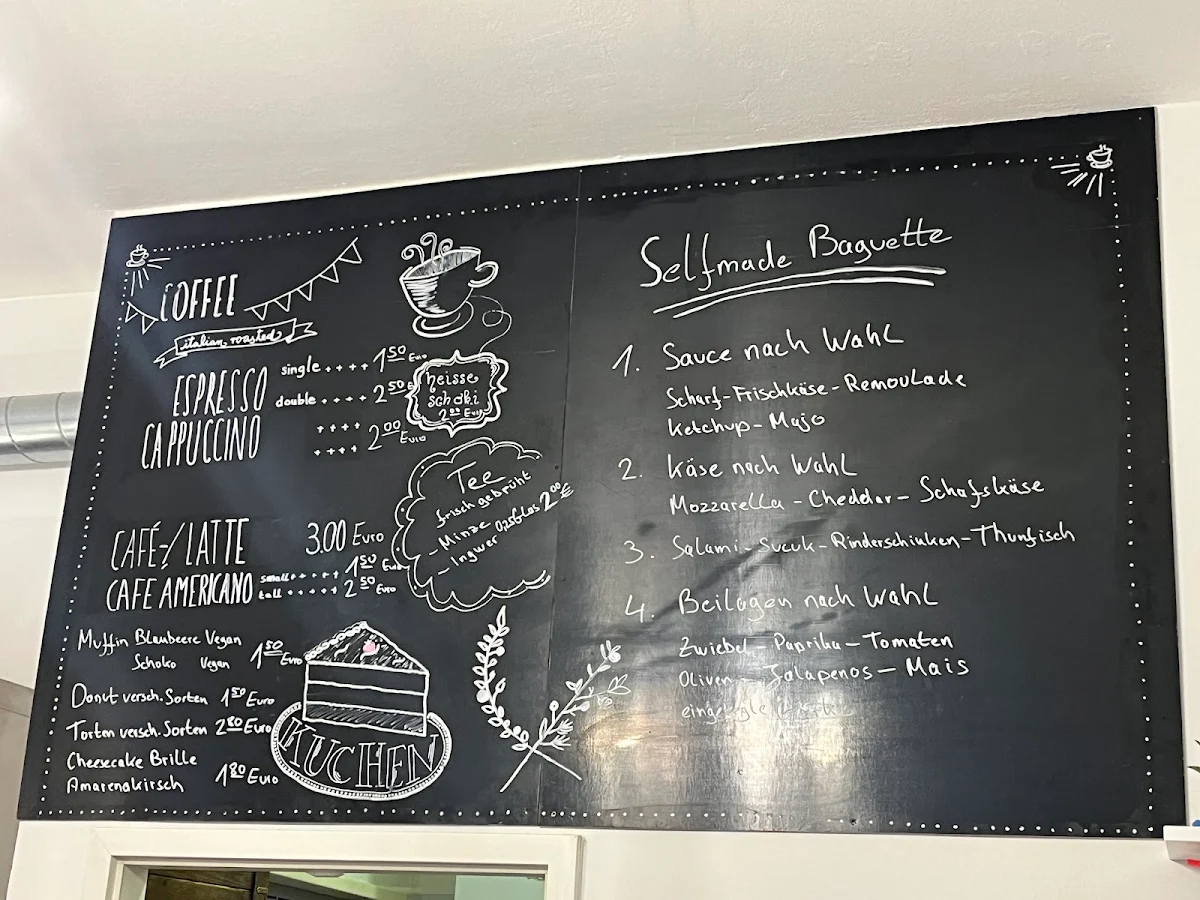 COFFEE
italian roasted
ESPRESSO
single .... 1 50 Euro
double .... 2 50
CAPPUCCINO
.... 2 00 Euro
....
heisse
schoki
2 00 Euro
Tee
frisch gebrüht
- Minze
- Ingwer 0,25 Glas 2 00 €
CAFÉ-/LATTE 3.00 Euro
CAFE AMERICANO
small ..... 1 50 Euro
tall ..... 2 50 Euro
Muffin Blaubeere Vegan
Schoko Vegan 1 50 Euro
Donut versch. Sorten 1 50 Euro
Torten versch. Sorten 2 80 Euro
Cheesecake Brille
Amarenakirsch 1 80 Euro
KUCHEN
Selfmade Baguette
1. Sauce nach Wahl
Scharf - Frischkäse - Remoulade
Ketchup - Majo
2. Käse nach Wahl
Mozzarella - Cheddar - Schafskäse
3. Salami - Sucuk - Rinderschinken - Thunfisch
4. Beilagen nach Wahl
Zwiebel - Paprika - Tomaten
Oliven - Jalapenos - Mais